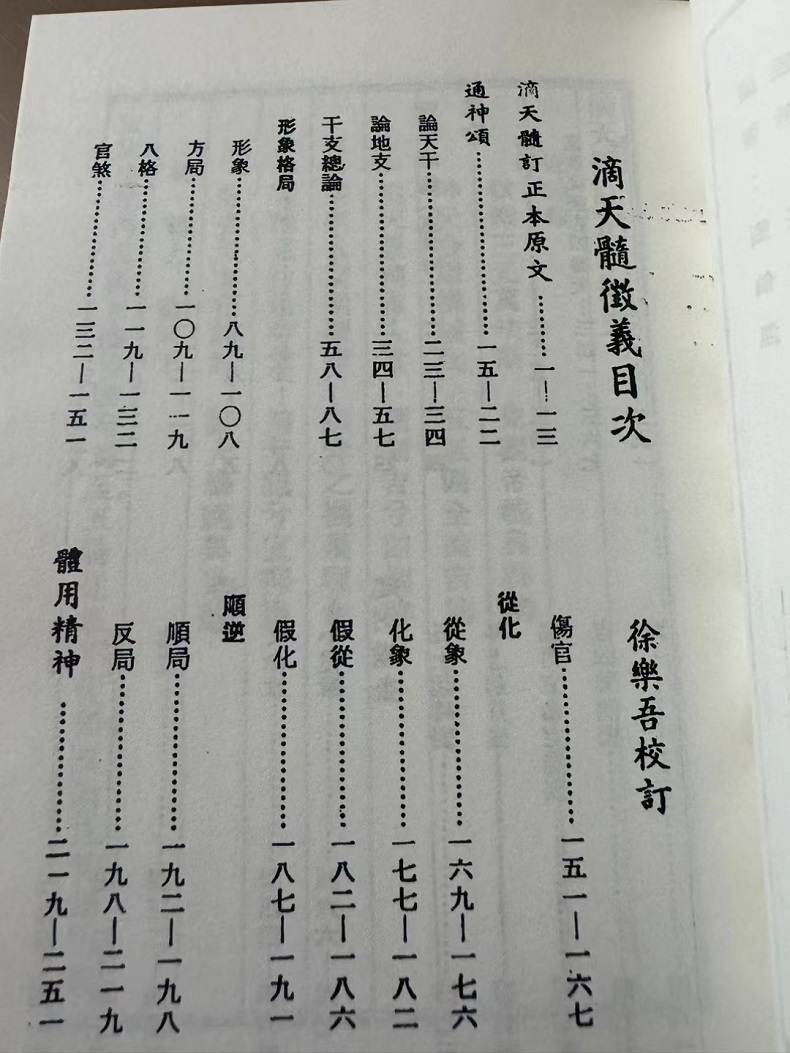 滴天髓徵義目次
徐樂吾校訂
滴天髓訂正本原文………一—一三
通神頌………一五—二二
論天干………二三—三四
論地支………三四—五七
干支總論………五八—八七
形象格局
形象………八九—一〇八
方局………一〇九—一一九
八格………一一九—一三二
官煞………一三二—一五一
傷官………一五一—一六七
從化
從象………一六九—一七六
化象………一七七—一八二
假從………一八二—一八六
假化………一八七—一九一
順逆
順局………一九二—一九八
反局………一九八—二一九
體用精神………二一九—二五一